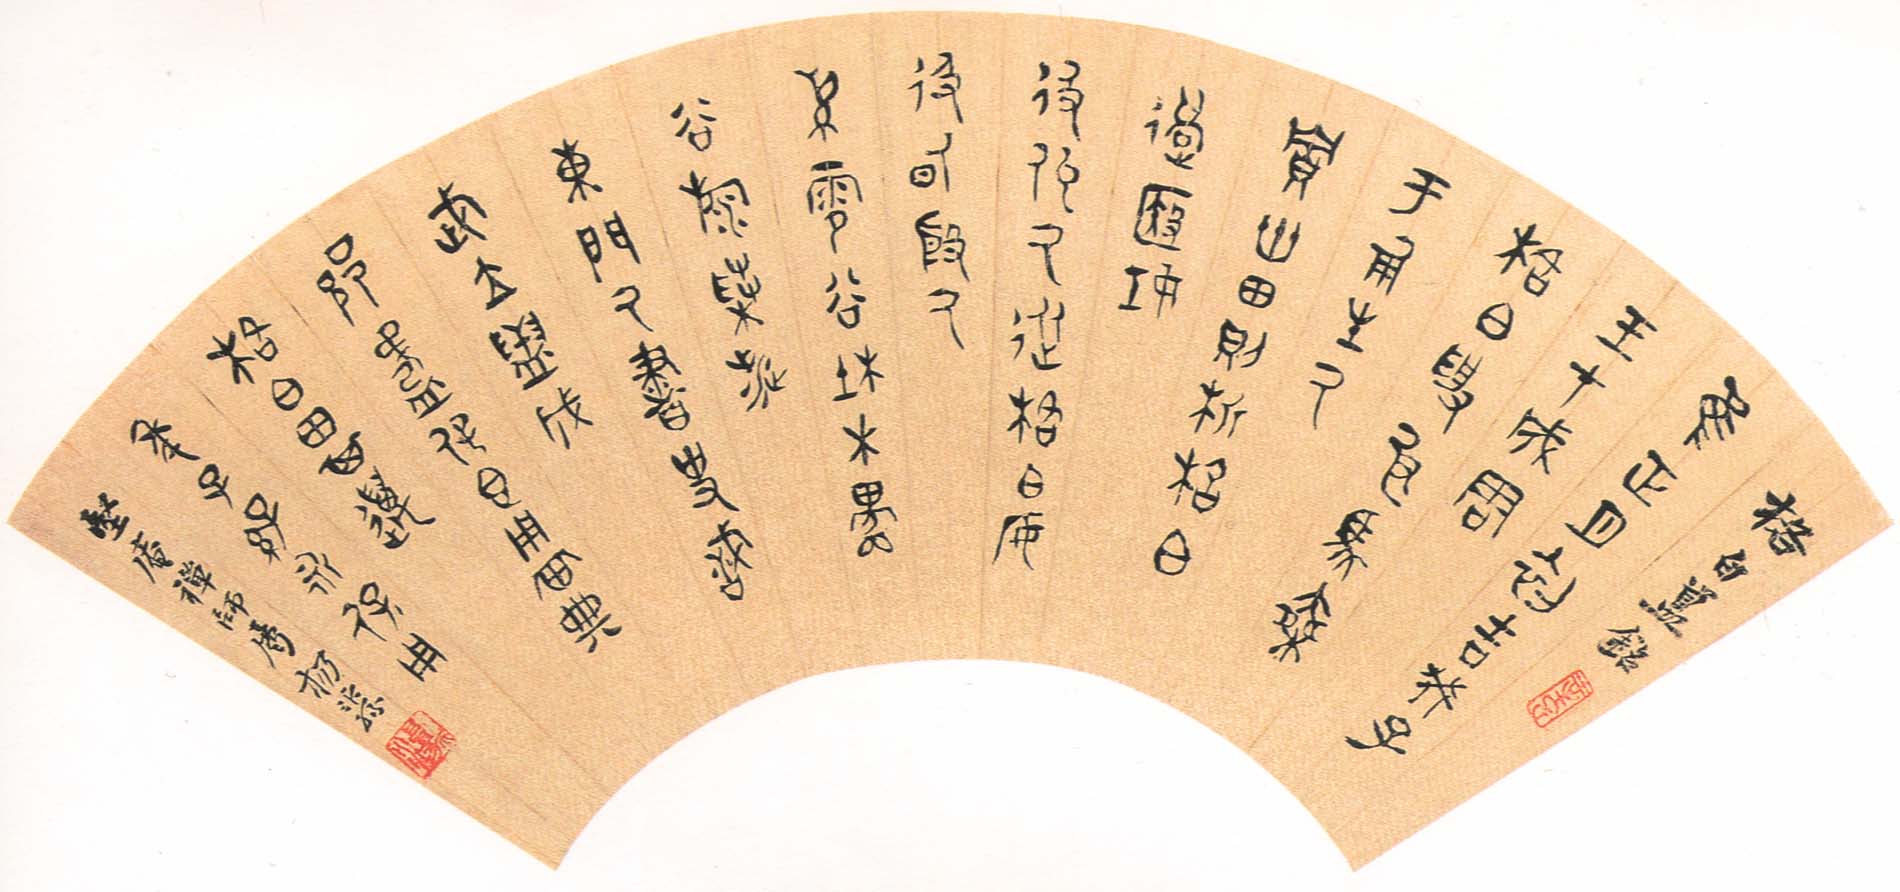 格白簋銘
隹正月初吉癸子
王才成周
格白取良馬乘
于倗生厥
貯卅田則析格白
殹妊
彶仡厥從格白安
彶甸殷厥
雩谷杜木
谷旅桑涉
東門厥書史戠
武立盨成
鑄保簋用典
格白田其邁
年子孫永保用
庵禪師屬